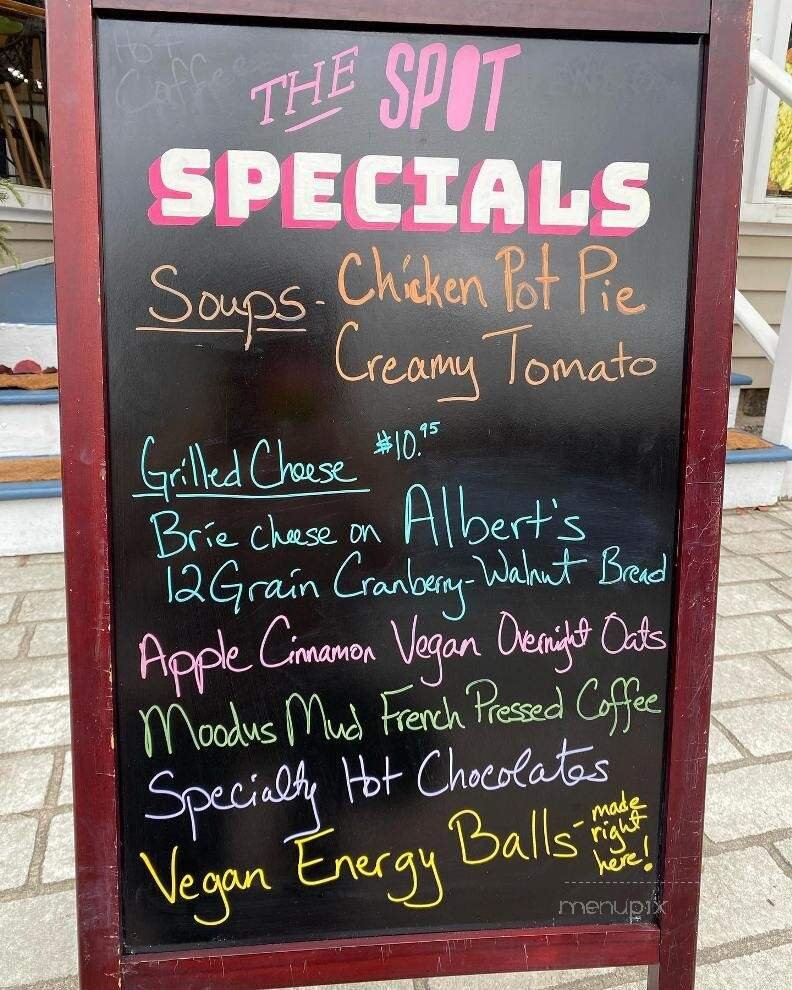 Hot
Coffee
THE SPOT
SPECIALS
Soups - Chicken Pot Pie
Creamy Tomato
Grilled Cheese $10.95
Brie cheese on Albert's
12 Grain Cranberry-Walnut Bread
Apple Cinnamon Vegan Overnight Oats
Moodus Mud French Pressed Coffee
Specialty Hot Chocolates
Vegan Energy Balls - made
right
here!
menupix